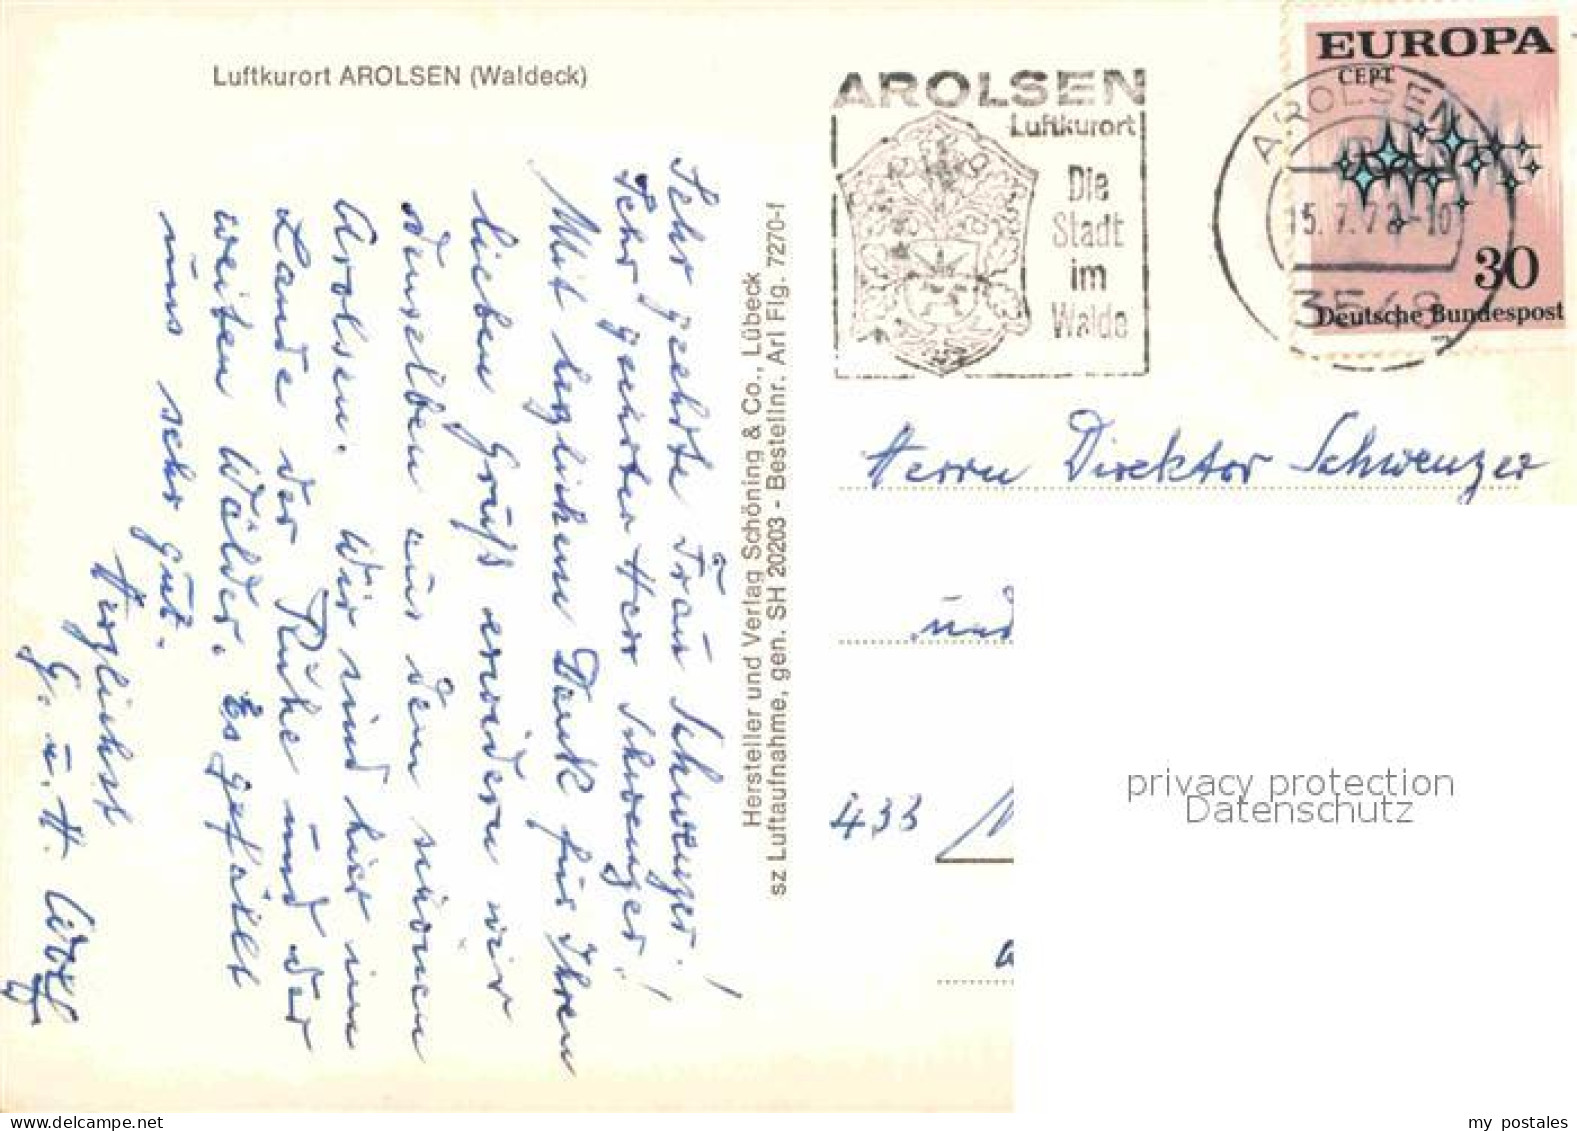 Luftkurort AROLSEN (Waldeck)
Sehr geehrte Frau Schwenzer!
Sehr geehrter Herr Schwenzer!
Mit herzlichem Dank für Ihren
lieben Gruß erwidern wir
denselben aus dem schönen
Arolsen. Wir sind hier im
Lande der Ruhe und der
weiten Wälder. Es gefällt
uns sehr gut.
Herzlichst
G. u. H.
Hersteller und Verlag Schöning & Co., Lübeck
sz Luftaufnahme, gen. SH 20203 - Bestellnr. Arl Flg. 7270-f
AROLSEN
Luftkurort
Die
Stadt
im
Walde
EUROPA
CEPT
AROLSEN
15.7.72-10
3548
30
Deutsche Bundespost
Herrn Direktor Schwenzer
und
433
privacy protection
Datenschutz
www.delcampe.net
my postales